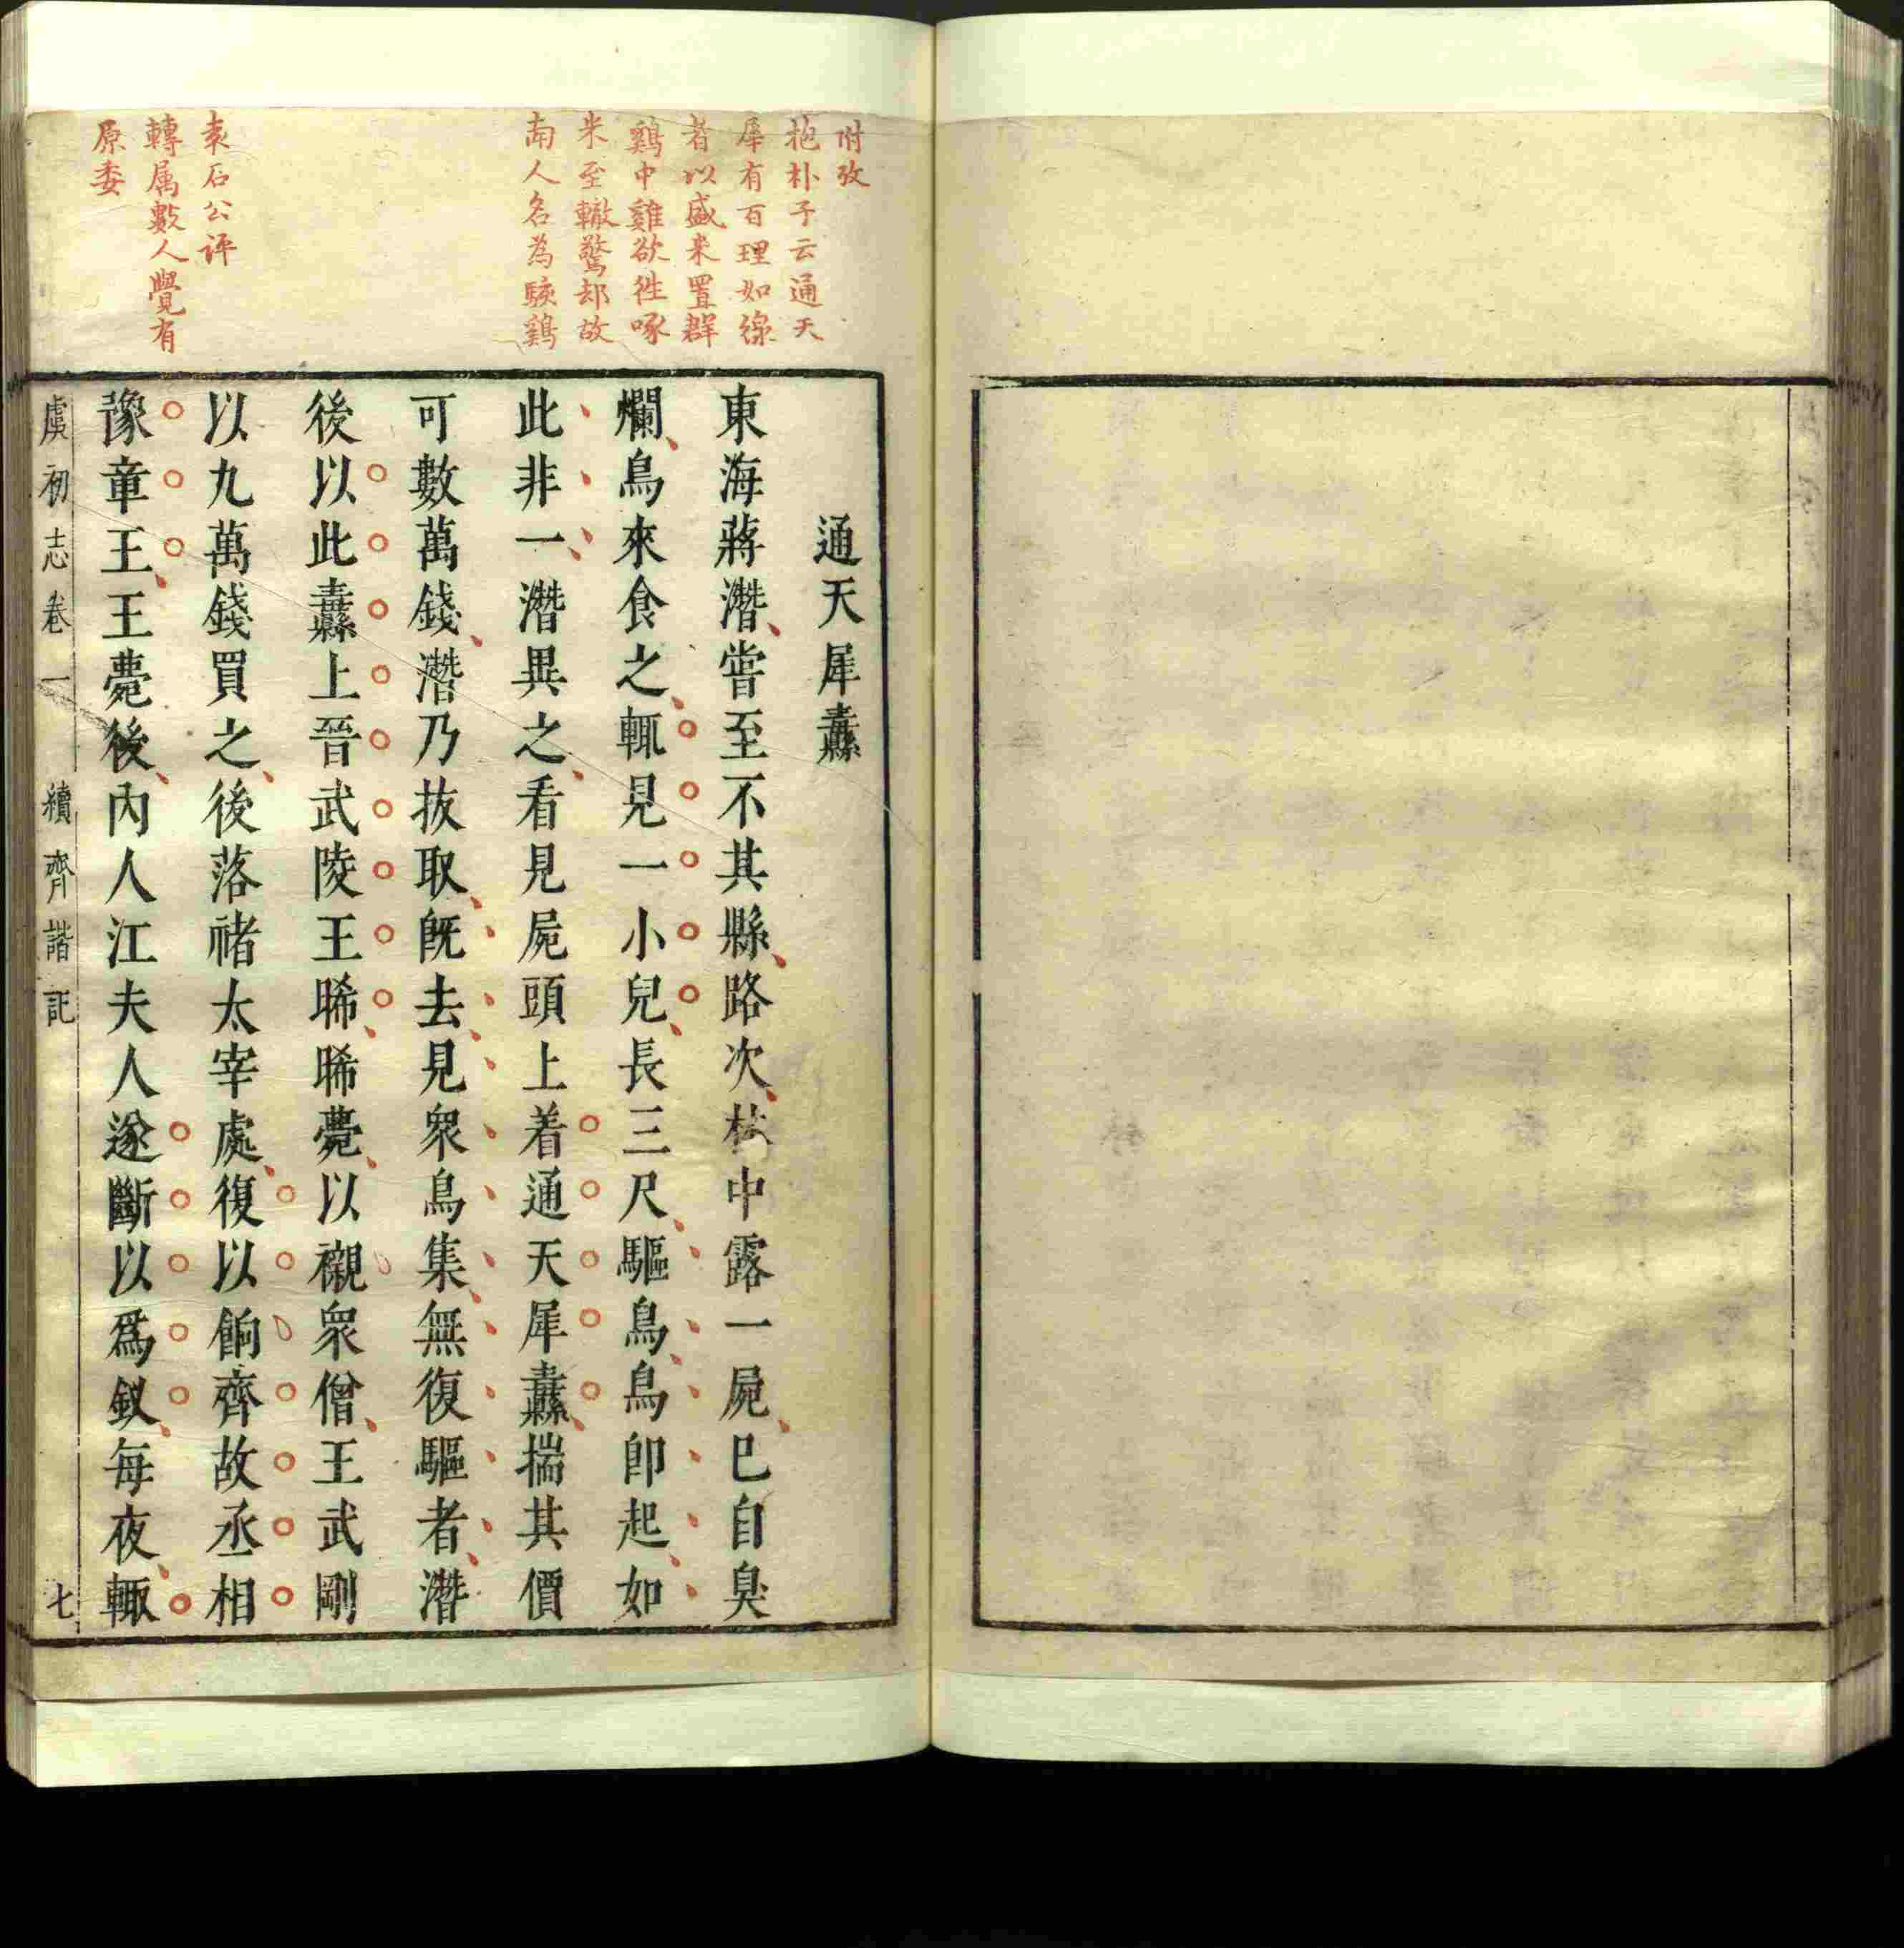 附攷
抱朴子云通天
犀有百理如綖
者以盛米置群
鷄中雞欲徃啄
米至轍驚却故
南人名為駭鷄
袁石公評
轉属數人覺有
原委
通天犀纛
東海蔣濳嘗至不其縣路次林中露一屍巳自臭
爛鳥來食之輒見一小兒長三尺驅鳥鳥卽起如
此非一濳異之看見屍頭上着通天犀纛揣其價
可數萬錢濳乃拔取旣去見衆鳥集無復驅者濳
後以此纛上晉武陵王晞晞薨以襯衆僧王武剛
以九萬錢買之後落禇太宰處復以餉齊故丞相
豫章王王薨後內人江夫人遂斷以爲釵每夜輒
虞初志卷一 續齊諧記 七